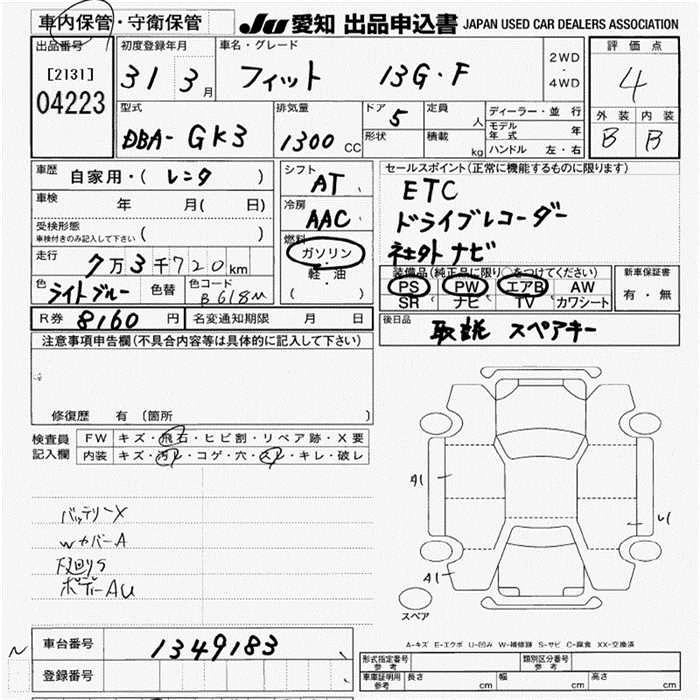 車内保管・守衛保管
JU 愛知 出品申込書 JAPAN USED CAR DEALERS ASSOCIATION
出品番号
[2131]
04223
初度登録年月
31 3月
車名・グレード
フィット 13G・F
2WD
・
4WD
評価点
4
外装 内装
B B
型式
DBA- GK3
排気量
1300 CC
ドア 5
形状
定員 人
積載 kg
ディーラー・並行
モデル年式 年
ハンドル 左・右
車歴
自家用・( レンタ )
車検 年 月( 日)
受検形態
車検付きのみ記入して下さい ( )
走行 7万3千720km
色 ライトブルー 色替 色コード B618M
R券 8160 円 名変通知期限 月 日
シフト
AT
冷房
AAC
燃料
ガソリン
・
軽・油
( )
セールスポイント(正常に機能するものに限ります)
ETC
ドライブレコーダー
社外ナビ
装備品(純正品に限り○をつけてください)
PS PW エアB AW
SR ナビ TV カワシート
新車保証書
有・無
後日品
取説 スペアキー
注意事項申告欄(不具合内容等は具体的に記入して下さい)
修復歴 有(箇所 )
検査員記入欄
FW キズ・飛石・ヒビ割・リペア跡・X要
内装 キズ・汚レ・コゲ・穴・スレ・キレ・破レ
バッテリーX
WカバーA
下廻りS
ボデーAU
A1
A1
スペア
A-キズ E-エクボ U-凹み W-補修跡 S-サビ C-腐食 XX-交換済
車台番号 1349183
登録番号
形式指定番号 参考
類別区分番号 参考
車庫証明用 参考 長さ cm 幅 cm 高さ cm